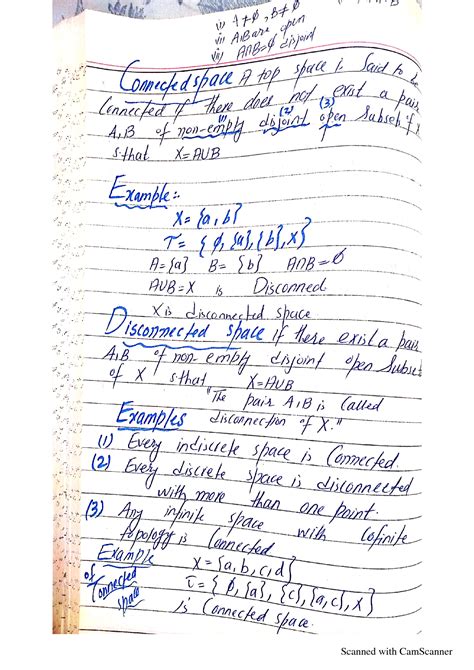 i) A≠ϕ, B≠ϕ
ii) A,B are open
iii) A∩B=ϕ disjoint
Connected space A top space is Said to be
Connected if there does not exist a pair
A,B of non-empty (1) disjoint (2) open (3) Subsets of
s.that X=AUB
Example:-
X={a,b}
τ={ϕ,{a},{b},X}
A={a} B={b} A∩B=ϕ
AUB=X is Disconned
X is disconnected space
Disconnected space if there exist a pair
A,B of non empty disjoint open Subset
of X s.that X=AUB
"The pair A,B is Called
Examples disconnection of X."
(1) Every indiscrete space is Connected.
(2) Every discrete space is disconnected
with more than one point.
(3) Any infinite space with Cofinite
topology is Connected
Example X={a,b,c,d}
of Connected τ={ϕ,{a},{c},{a,c},X}
space is Connected space.
Scanned with CamScanner